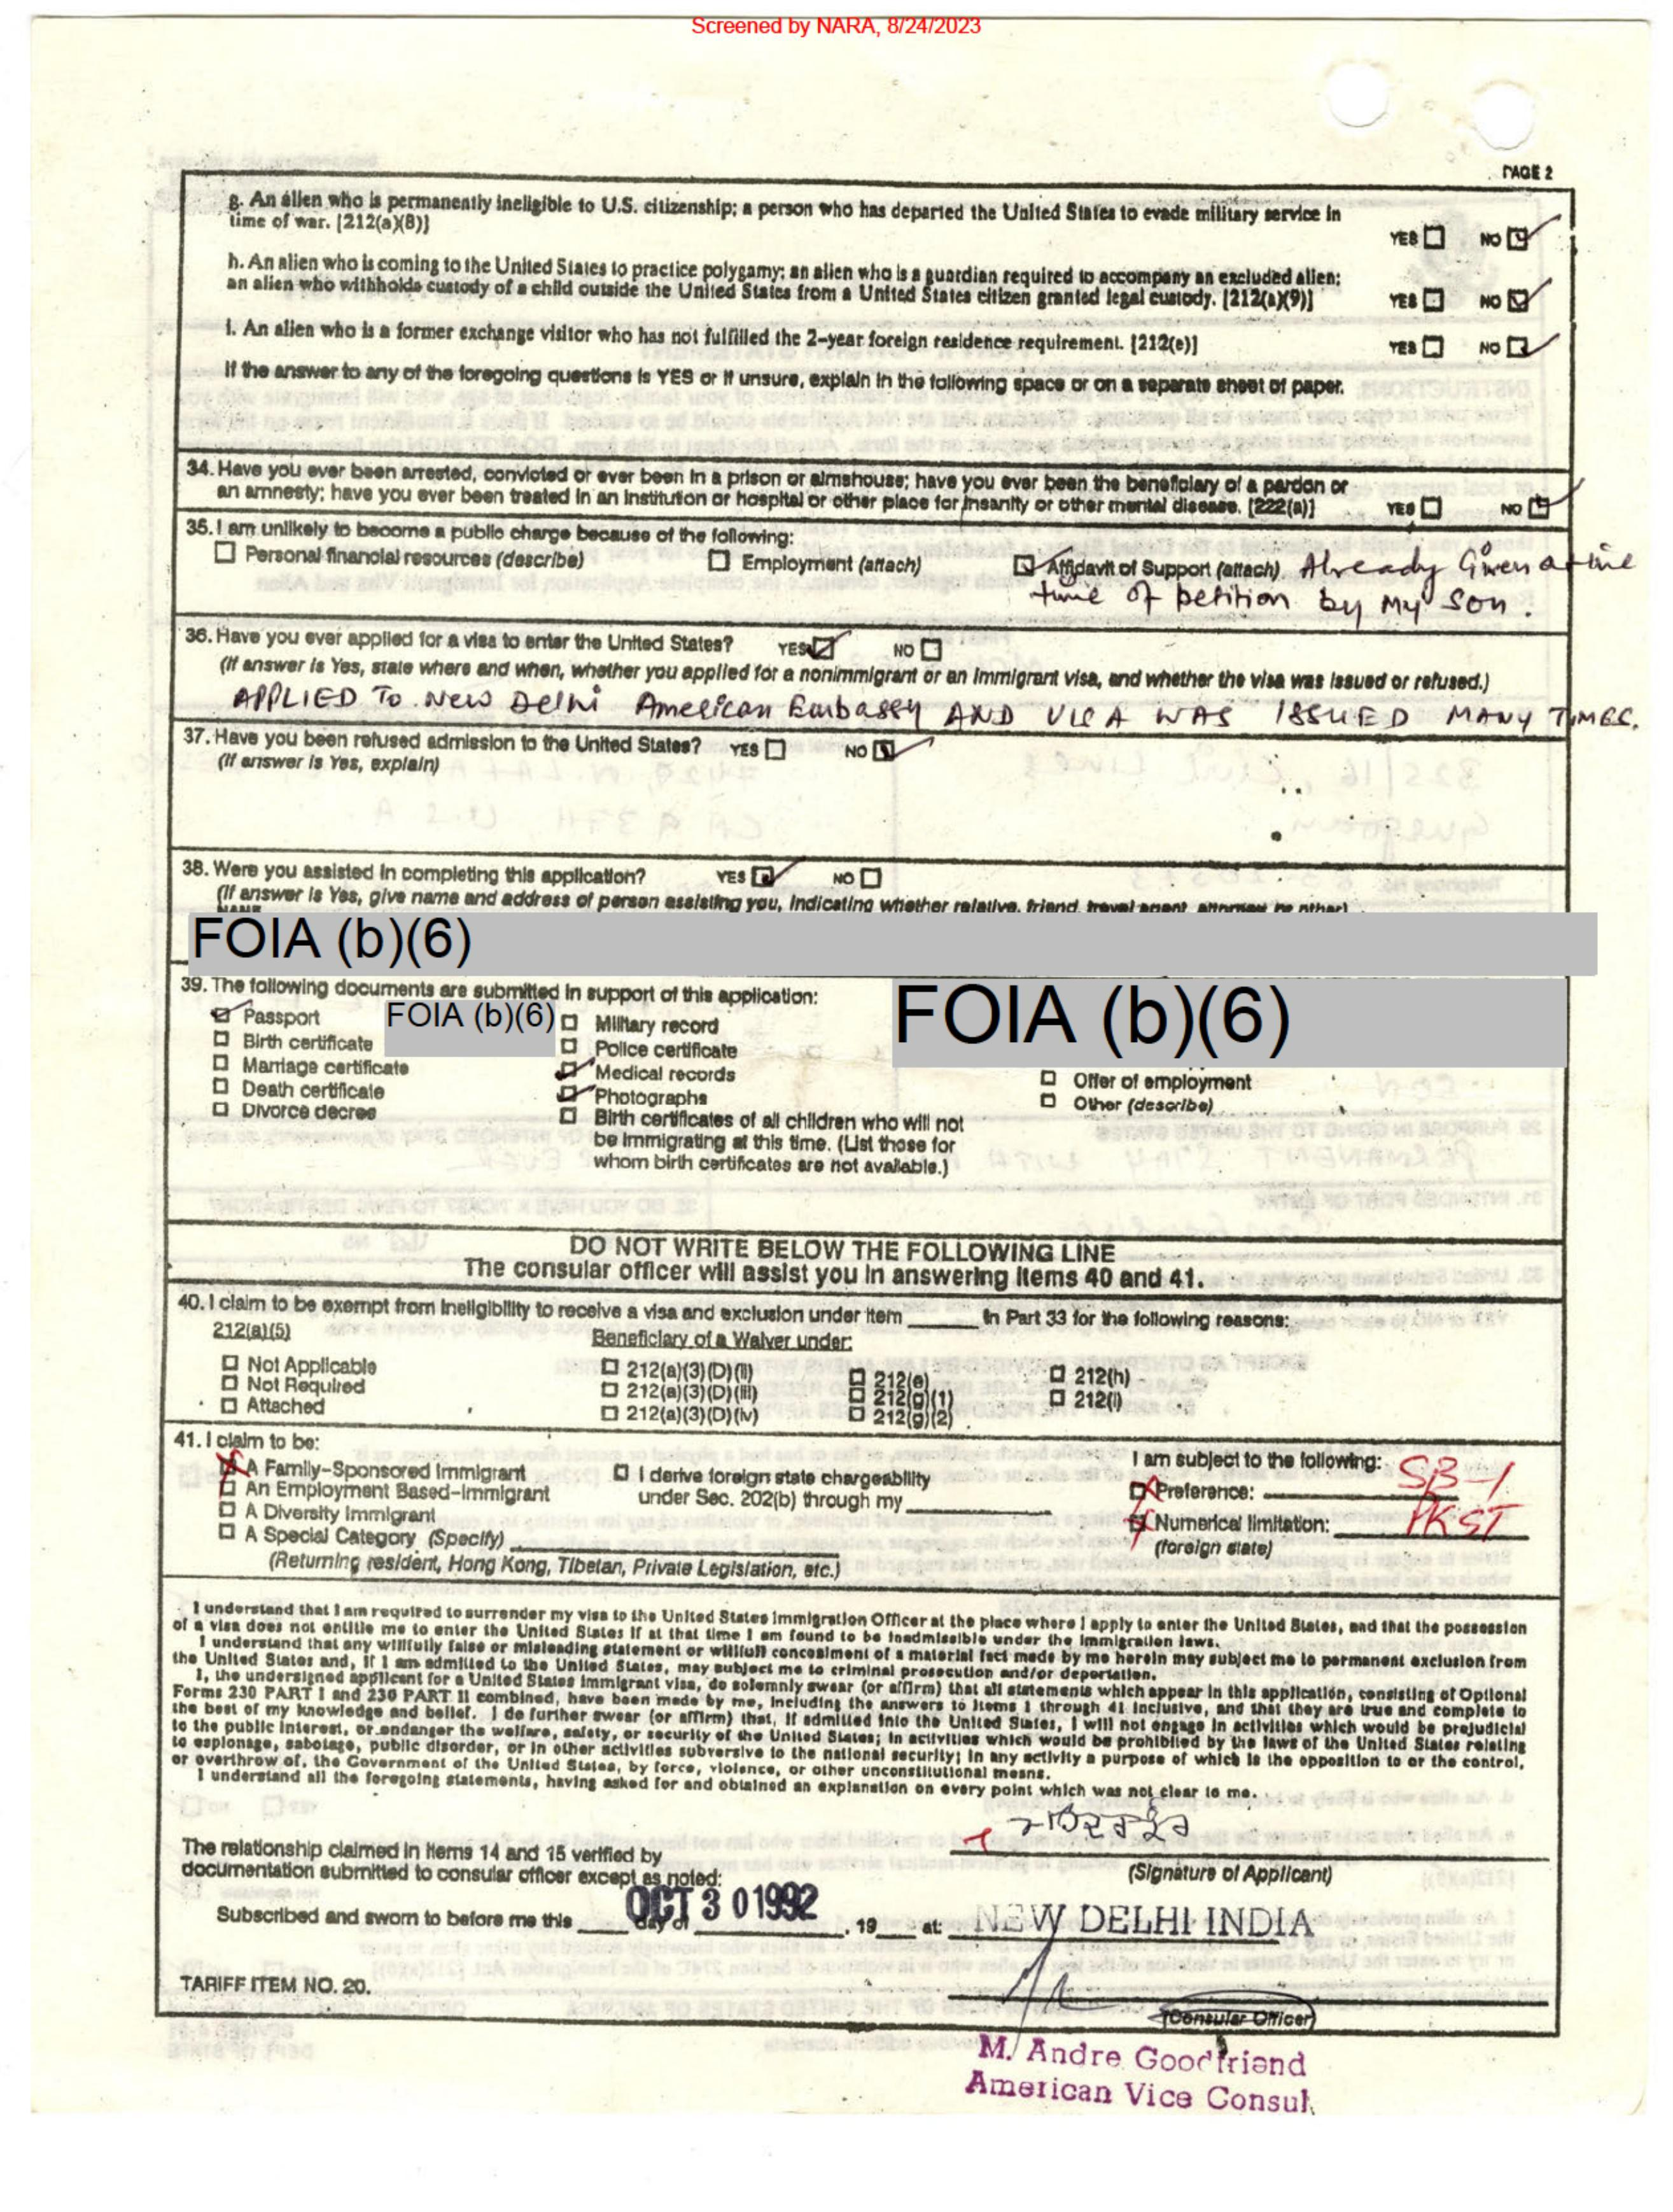 Screened by NARA, 8/24/2023
PAGE 2
g. An alien who is permanently ineligible to U.S. citizenship; a person who has departed the United States to evade military service in
time of war. [212(a)(8)]
YES NO
h. An alien who is coming to the United States to practice polygamy; an alien who is a guardian required to accompany an excluded alien;
an alien who withholds custody of a child outside the United States from a United States citizen granted legal custody. [212(a)(9)]
YES NO
i. An alien who is a former exchange visitor who has not fulfilled the 2-year foreign residence requirement. [212(e)]
YES NO
If the answer to any of the foregoing questions is YES or if unsure, explain in the following space or on a separate sheet of paper.
34. Have you ever been arrested, convicted or ever been in a prison or almshouse; have you ever been the beneficiary of a pardon or
an amnesty; have you ever been treated in an institution or hospital or other place for insanity or other mental disease. [222(a)]
YES NO
35. I am unlikely to become a public charge because of the following:
Personal financial resources (describe) Employment (attach) Affidavit of Support (attach) Already Given at the
time of petition by my son.
36. Have you ever applied for a visa to enter the United States? YES NO
(If answer is Yes, state where and when, whether you applied for a nonimmigrant or an immigrant visa, and whether the visa was issued or refused.)
APPLIED To New Delhi American Embassy AND VISA WAS ISSUED MANY TIMES.
37. Have you been refused admission to the United States? YES NO
(If answer is Yes, explain)
38. Were you assisted in completing this application? YES NO
(If answer is Yes, give name and address of person assisting you, indicating whether relative, friend, travel agent, attorney or other)
FOIA (b)(6)
39. The following documents are submitted in support of this application:
FOIA (b)(6)
FOIA (b)(6)
Passport
Birth certificate
Marriage certificate
Death certificate
Divorce decree
Military record
Police certificate
Medical records
Photographs
Birth certificates of all children who will not
be immigrating at this time. (List those for
whom birth certificates are not available.)
Offer of employment
Other (describe)
DO NOT WRITE BELOW THE FOLLOWING LINE
The consular officer will assist you in answering items 40 and 41.
40. I claim to be exempt from ineligibility to receive a visa and exclusion under item ______ in Part 33 for the following reasons:
212(a)(5)
Beneficiary of a Waiver under:
Not Applicable
Not Required
Attached
212(a)(3)(D)(ii)
212(a)(3)(D)(iii)
212(a)(3)(D)(iv)
212(e)
212(g)(1)
212(g)(2)
212(h)
212(i)
41. I claim to be:
A Family-Sponsored Immigrant
An Employment Based-Immigrant
A Diversity Immigrant
A Special Category (Specify)
(Returning resident, Hong Kong, Tibetan, Private Legislation, etc.)
I derive foreign state chargeability
under Sec. 202(b) through my
I am subject to the following:
Preference: SB-1
Numerical limitation: PKST
(foreign state)
I understand that I am required to surrender my visa to the United States Immigration Officer at the place where I apply to enter the United States, and that the possession
of a visa does not entitle me to enter the United States if at that time I am found to be inadmissible under the immigration laws.
I understand that any willfully false or misleading statement or willfull concealment of a material fact made by me herein may subject me to permanent exclusion from
the United States and, if I am admitted to the United States, may subject me to criminal prosecution and/or deportation.
I, the undersigned applicant for a United States immigrant visa, do solemnly swear (or affirm) that all statements which appear in this application, consisting of Optional
Forms 230 PART I and 230 PART II combined, have been made by me, including the answers to items 1 through 41 inclusive, and that they are true and complete to
the best of my knowledge and belief. I do further swear (or affirm) that, if admitted into the United States, I will not engage in activities which would be prejudicial
to the public interest, or endanger the welfare, safety, or security of the United States; in activities which would be prohibited by the laws of the United States relating
to espionage, sabotage, public disorder, or in other activities subversive to the national security; in any activity a purpose of which is the opposition to or the control,
or overthrow of, the Government of the United States, by force, violence, or other unconstitutional means.
I understand all the foregoing statements, having asked for and obtained an explanation on every point which was not clear to me.
(Signature of Applicant)
The relationship claimed in items 14 and 15 verified by
documentation submitted to consular officer except as noted:
Subscribed and sworn to before me this ____ day of OCT 30 1992, 19 ___ at: NEW DELHI INDIA
TARIFF ITEM NO. 20.
(Consular Officer)
M. Andre Goodfriend
American Vice Consul